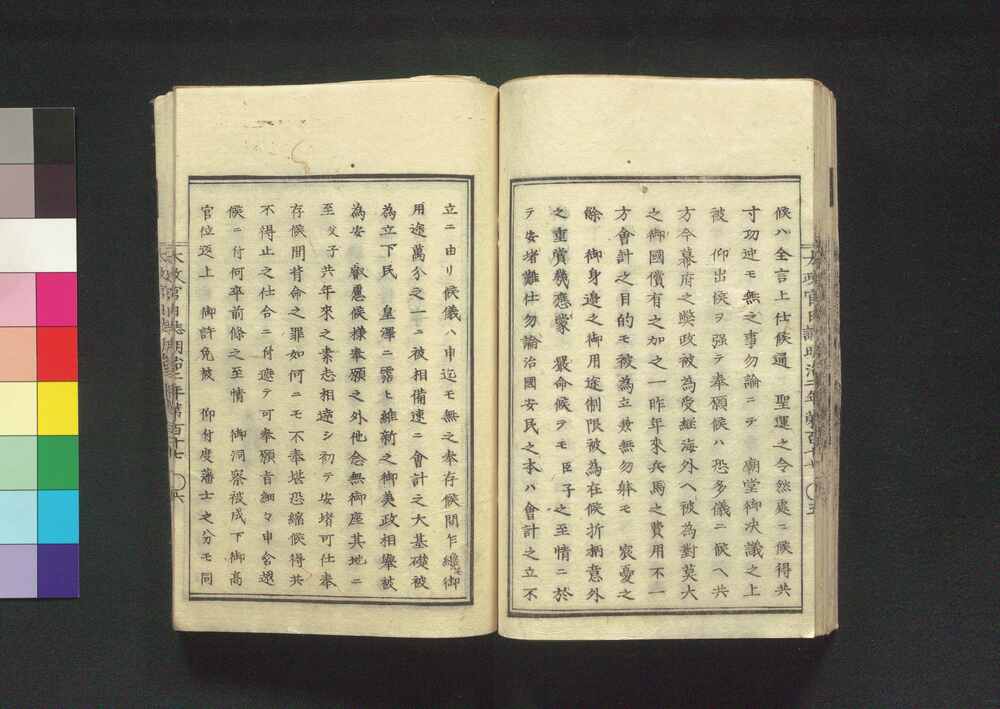 候ハ全言上仕候通　聖運之令然處ニ候得共
寸功迚モ無之事勿論ニテ　廟堂御決議之上
被　仰出候ヲ强テ奉願候ハ恐多儀ニ候ヘ共
方今幕府之弊政被為受継海外ヘ被為對莫大
之御國債有之加之一昨年來兵馬之費用不一
方會計之目的モ被為立兼無勿躰モ　宸憂之
餘　御身邊之御用途御制限被為在候折柄意外
之重賞幾應蒙　嚴命候テモ臣子之至情ニ於
テ安堵難仕勿論治國安民之本ハ會計之立不
立ニ由リ候儀ハ申迄モ無之奉存候間乍纔御
用途萬分之一ニ被相備速ニ會計之大基礎被
為立下民　皇澤ニ霑ヒ維新之御美政相擧被
為安　叡慮候様奉願之外他念無御座其地ニ
至父子共年來之素志相達シテ初テ安堵可仕奉
存候間背命之罪如何ニモ不奉堪恐縮候得共
不得止之仕合ニ付遮テ可奉願旨細々申含遣
候ニ付何卒前條之至情　御洞察被成下御高
官位返上　御許免被　仰付度藩士之分モ同
太政官日誌明治二年第百十七　〇五
太政官日誌明治二年第百十七　〇六